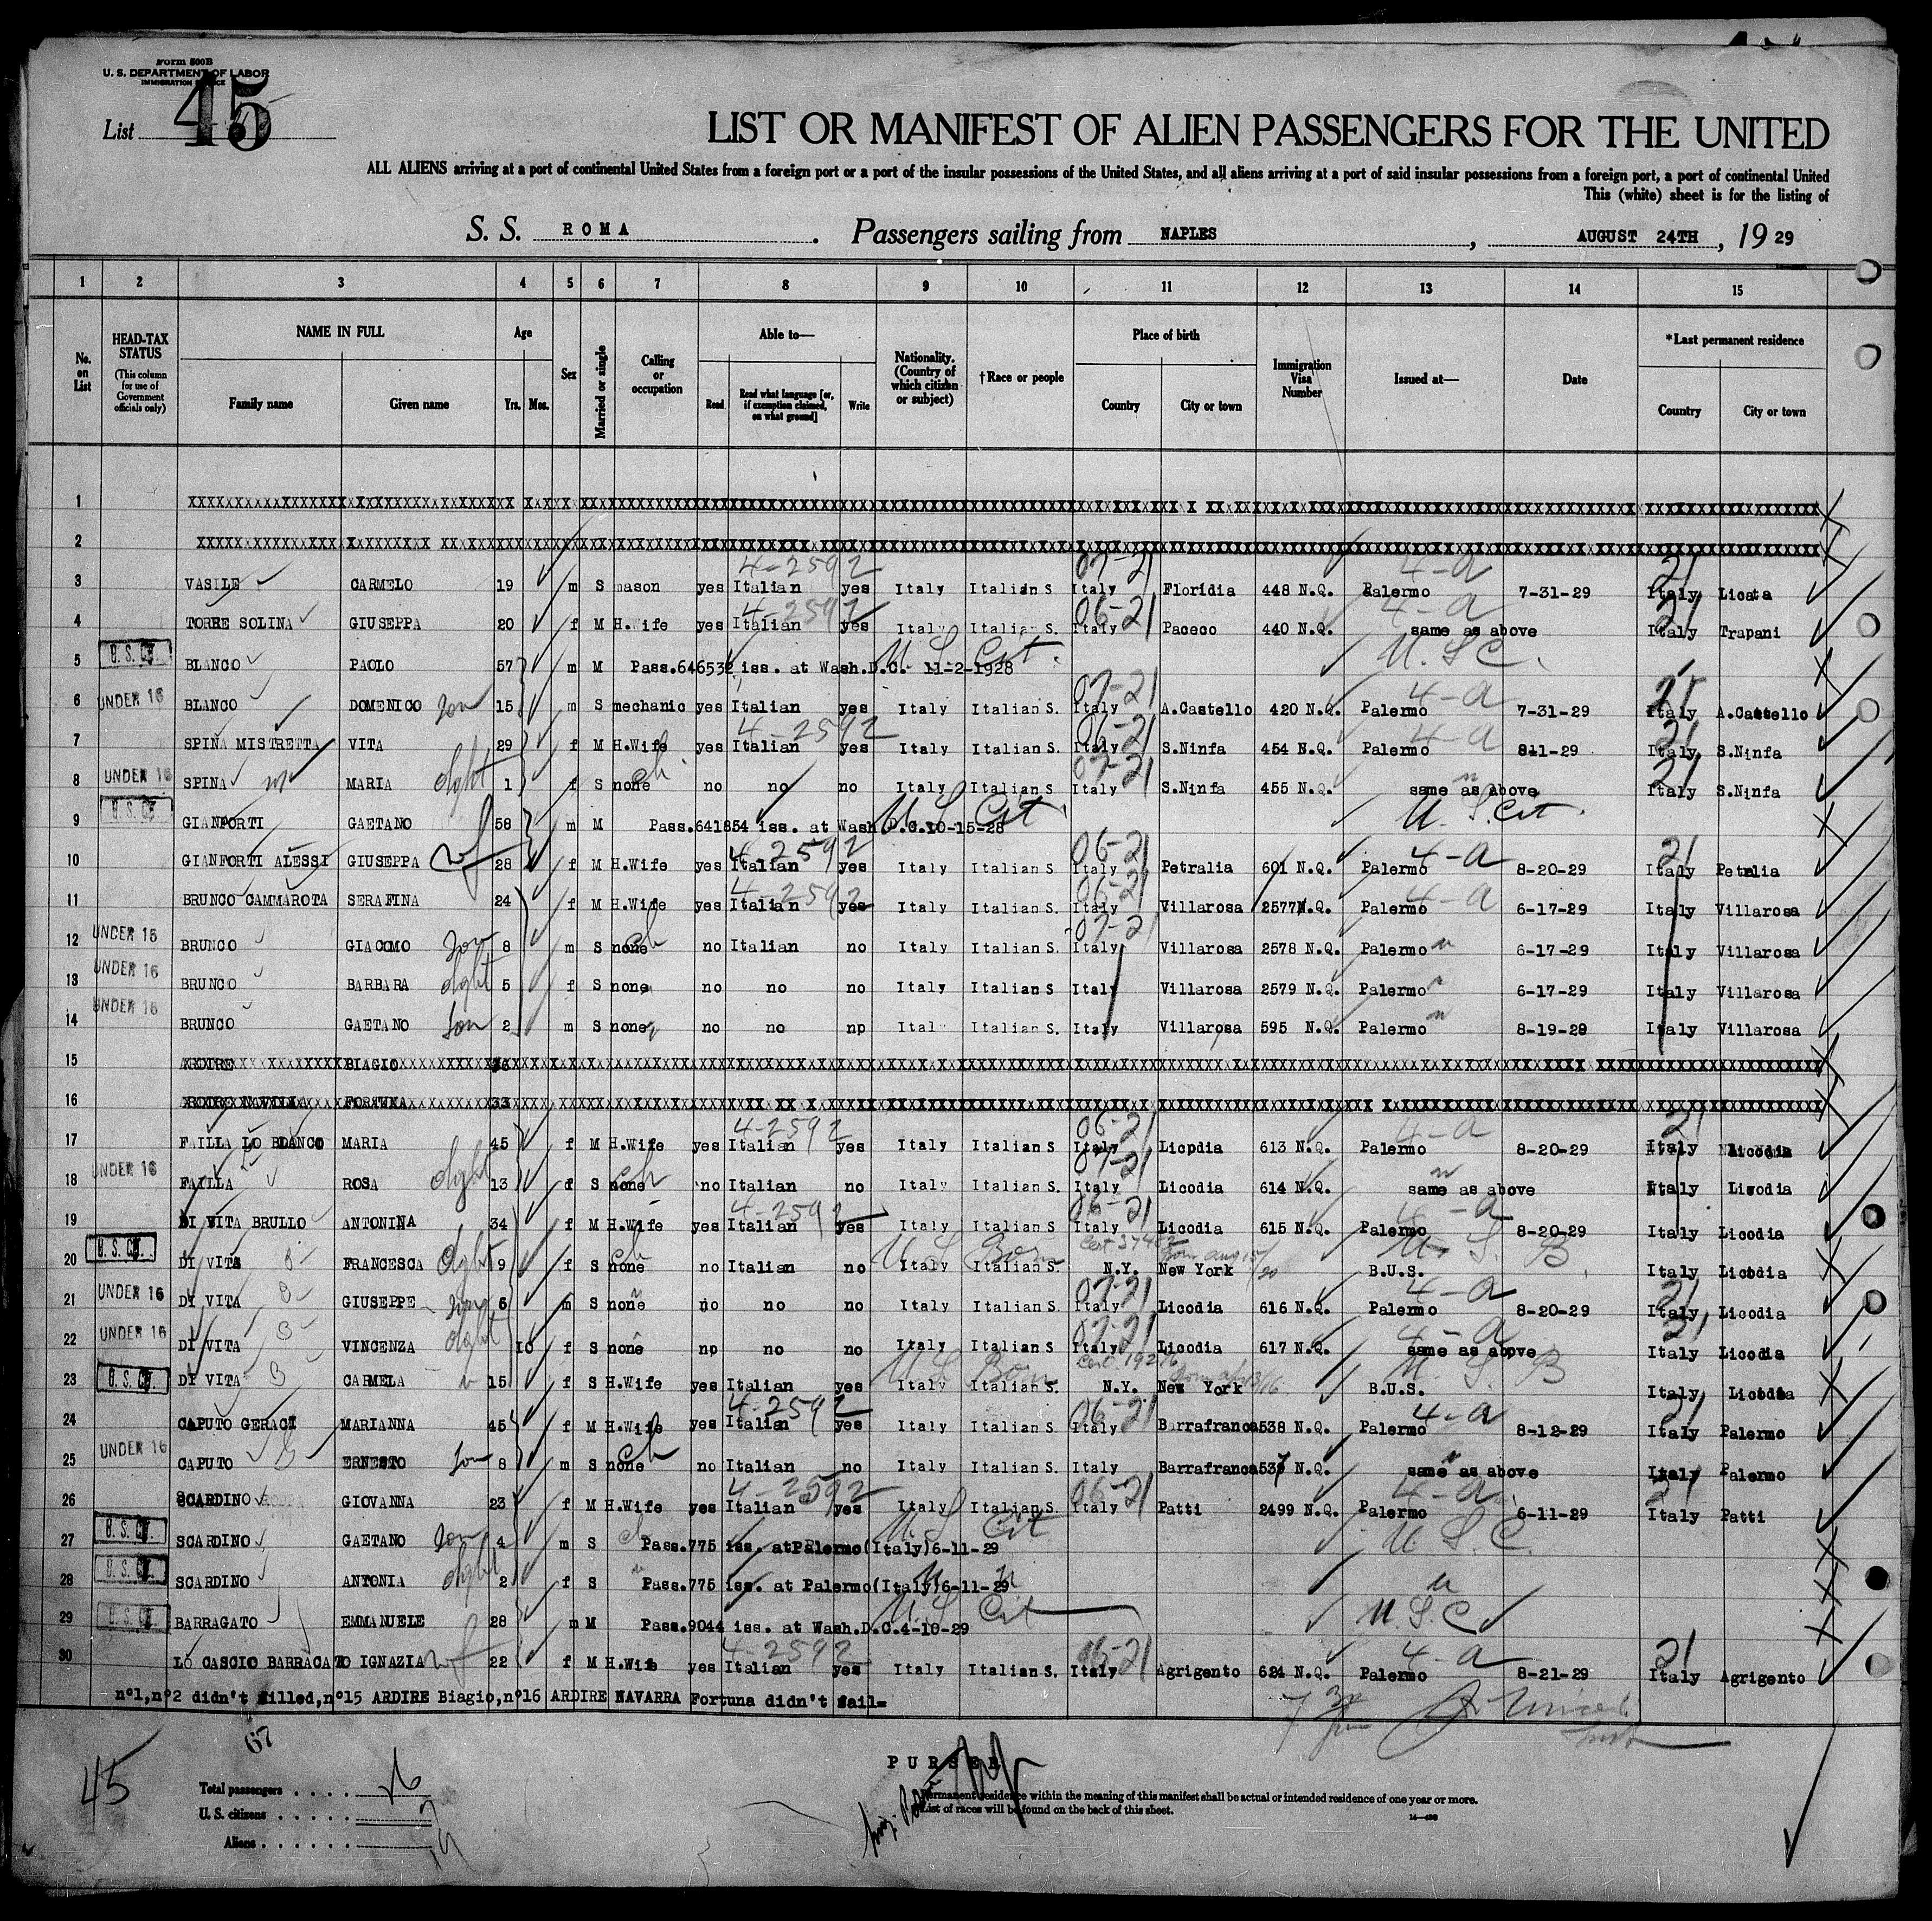 Form 500B
U. S. DEPARTMENT OF LABOR
IMMIGRATION
List 45
LIST OR MANIFEST OF ALIEN PASSENGERS FOR THE UNITED
ALL ALIENS arriving at a port of continental United States from a foreign port or a port of the insular possessions of the United States, and all aliens arriving at a port of said insular possessions from a foreign port, a port of continental United
This (white) sheet is for the listing of
S. S. ROMA. Passengers sailing from NAPLES, AUGUST 24TH, 1929
1 2 3 4 5 6 7 8 9 10 11 12 13 14 15
No. on List HEAD-TAX STATUS (This column for use of Government officials only) NAME IN FULL Family name Given name Age Yrs. Mos. Sex Married or single Calling or occupation Able to— Read Read what language [or, if exemption claimed, on what ground] Write Nationality. (Country of which citizen or subject) †Race or people Place of birth Country City or town Immigration Visa Number Issued at— Date *Last permanent residence Country City or town
1
2
4-2592 07-21 4-a 21
3 VASILE CARMELO 19 m S mason yes Italian yes Italy Italian S Italy Floridia 448 N.Q. Palermo 7-31-29 Italy Licata
4-2592 06-21 4-a 21
4 TORRE SOLINA GIUSEPPA 20 f M H.Wife yes Italian yes Italy Italian S. Italy Paceco 440 N.Q. same as above Italy Trapani
U. S. Cit. U. S. C.
5 U.S.CIT. BLANCO PAOLO 57 m M Pass.646532 iss. at Wash.D.C. 11-2-1928
07-21 4-a 21
6 UNDER 16 BLANCO DOMENICO son 15 m S mechanic yes Italian yes Italy Italian S. Italy A.Castello 420 N.Q. Palermo 7-31-29 Italy A.Castello
4-2592 06-21 4-a 21
7 SPINA MISTRETTA VITA 29 f M H.Wife yes Italian yes Italy Italian S. Italy S.Ninfa 454 N.Q. Palermo 811-29 Italy S.Ninfa
07-21 21
8 UNDER 16 SPINA MARIA dght 1 f S none ch no no no Italy Italian S Italy S.Ninfa 455 N.Q. same as above Italy S.Ninfa
U S Cit U. S. Cit.
9 U.S.CIT. GIANFORTI GAETANO 58 m M Pass.641854 iss. at Wash.D.C.10-15-28
4-2592 06-21 4-a 21
10 GIANFORTI ALESSI GIUSEPPA wf 28 f M H.Wife yes Italian yes Italy Italian S Italy Petralia 601 N.Q. Palermo 8-20-29 Italy Petralia
4-2592 06-21 4-a
11 BRUNCO CAMMAROTA SERAFINA 24 f M H.Wife yes Italian yes Italy Italian S. Italy Villarosa 2577N.Q. Palermo 6-17-29 Italy Villarosa
07-21
12 UNDER 16 BRUNCO GIACOMO son 8 m S none ch no Italian no Italy Italian S. Italy Villarosa 2578 N.Q. Palermo 6-17-29 Italy Villarosa
13 UNDER 16 BRUNCO BARBARA dght 5 f S none no no no Italy Italian S Italy Villarosa 2579 N.Q. Palermo 6-17-29 Italy Villarosa
14 UNDER 16 BRUNCO GAETANO son 2 m S none no no np Italy Italian S. Italy Villarosa 595 N.Q. Palermo 8-19-29 Italy Villarosa
15 ARDIRE BIAGIO
16 FORTUNA 33
4-2592 06-21 4-a 21
17 FAILLA LO BIANCO MARIA 45 f M H.Wife yes Italian yes Italy Italian S Italy Licpdia 613 N.Q. Palermo 8-20-29 Italy Licodia
07-21
18 UNDER 16 FAILLA ROSA dght 13 f S none ch no Italian no Italy Italian S. Italy Licodia 614 N.Q. same as above Italy Licodia
4-2592 06-21 4-a
19 DI VITA BRULLO ANTONINA 34 f M H.Wife yes Italian yes Italy Italian S Italy Licodia 615 N.Q. Palermo 8-20-29 Italy Licodia
U S Born U. S. B
20 U.S.CIT. DI VITA B FRANCESCA dght 9 f S none ch no Italian no Italy Italian S. N.Y. New York B.U.S. Italy Licodia
07-21 4-a 21
21 UNDER 16 DI VITA B GIUSEPPE son 6 m S none no no no Italy Italian S. Italy Licodia 616 N.Q. Palermo 8-20-29 Italy Licodia
07-21 4-a 21
22 UNDER 16 DI VITA B VINCENZA dght 10 f S none np no no Italy Italian S. Italy Licodia 617 N.Q. same as above Italy Licodia
U S Born Cert. 19276 U. S. B
23 U.S.CIT. DI VITA B CARMELA 15 f S H.Wife yes Italian yes Italy Italian S. N.Y. New York B.U.S. Italy Licodia
4-2592 06-21 4-a 21
24 CAPUTO GERACI MARIANNA 45 f M H.Wife yes Italian yes Italy Italian S. Italy Barrafranca538 N.Q. Palermo 8-12-29 Italy Palermo
25 UNDER 16 CAPUTO ERNESTO son 8 m S none ch no Italian no Italy Italian S. Italy Barrafranca537 N.Q. same as above Italy Palermo
4-2592 06-21 4-a 21
26 SCARDINO GIOVANNA 23 f M H.Wife yes Italian yes Italy Italian S. Italy Patti 2499 N.Q. Palermo 6-11-29 Italy Patti
U. S. Cit U. S. C.
27 U.S.CIT. SCARDINO GAETANO son 4 m S ch Pass.775 iss. atPalermo(Italy)6-11-29
28 U.S.CIT. SCARDINO ANTONIA dght 2 f S Pass.775 iss. at Palermo(Italy)6-11-29
U. S. Cit U. S. C
29 U.S.CIT. BARRAGATO EMMANUELE 28 m M Pass.9044 iss. at Wash.D.C.4-10-29
4-2592 06-21 4-a 21
30 LO CASCIO BARRACATO IGNAZIA wf 22 f M H.Wife yes Italian yes Italy Italian S. Italy Agrigento 624 N.Q. Palermo 8-21-29 Italy Agrigento
nº1,nº2 didn't filled,nº15 ARDIRE Biagio,nº16 ARDIRE NAVARRA Fortuna didn't sail=
67
45
PURSER
Total passengers . . . . 26
U. S. citizens . . . . . 7
Aliens . . . . . . 19
Permanent residence within the meaning of this manifest shall be actual or intended residence of one year or more.
List of races will be found on the back of this sheet.